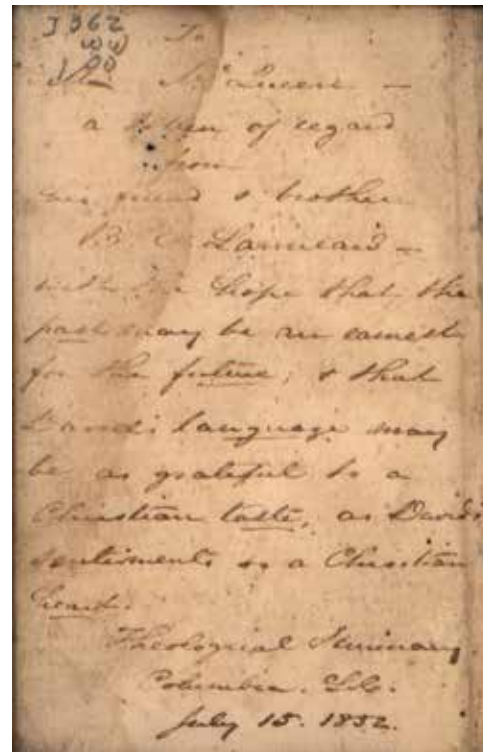 J362
To
Mr McQueen —
a token of regard
from
his friend & brother
B. C. Lanneau —
with the hope that the
past may be an earnest
for the future; & that
David's language may
be as grateful to a
Christian taste, as David's
sentiments to a Christian
heart.
Theological Seminary,
Columbia. S.C.
July 15. 1852.